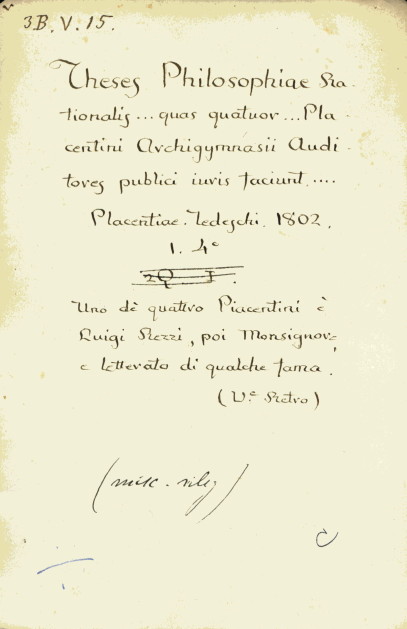 3B.V.15.
Theses Philosophiae Ra-
tionalis ... quas quatuor ... Pla-
centini Archigymnasii Audi-
tores publici iuris faciunt ....
Placentiae. Tedeschi. 1802.
1. 4°
Uno dè quattro Piacentini è
Luigi Rezzi, poi Monsignore
e letterato di qualche fama.
(V.e Retro)
(misc. rileg)
C